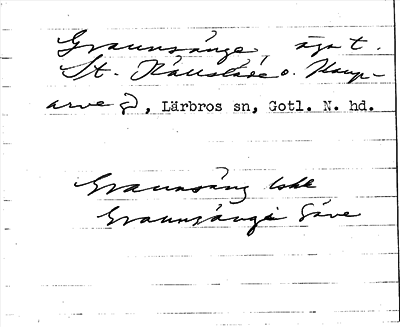 Graunsänge, äga t.
St. Råustäde o. Haup-
arve gd, Lärbros sn, Gotl. N. hd.
Graunsäng lske
Graunsängi Säve